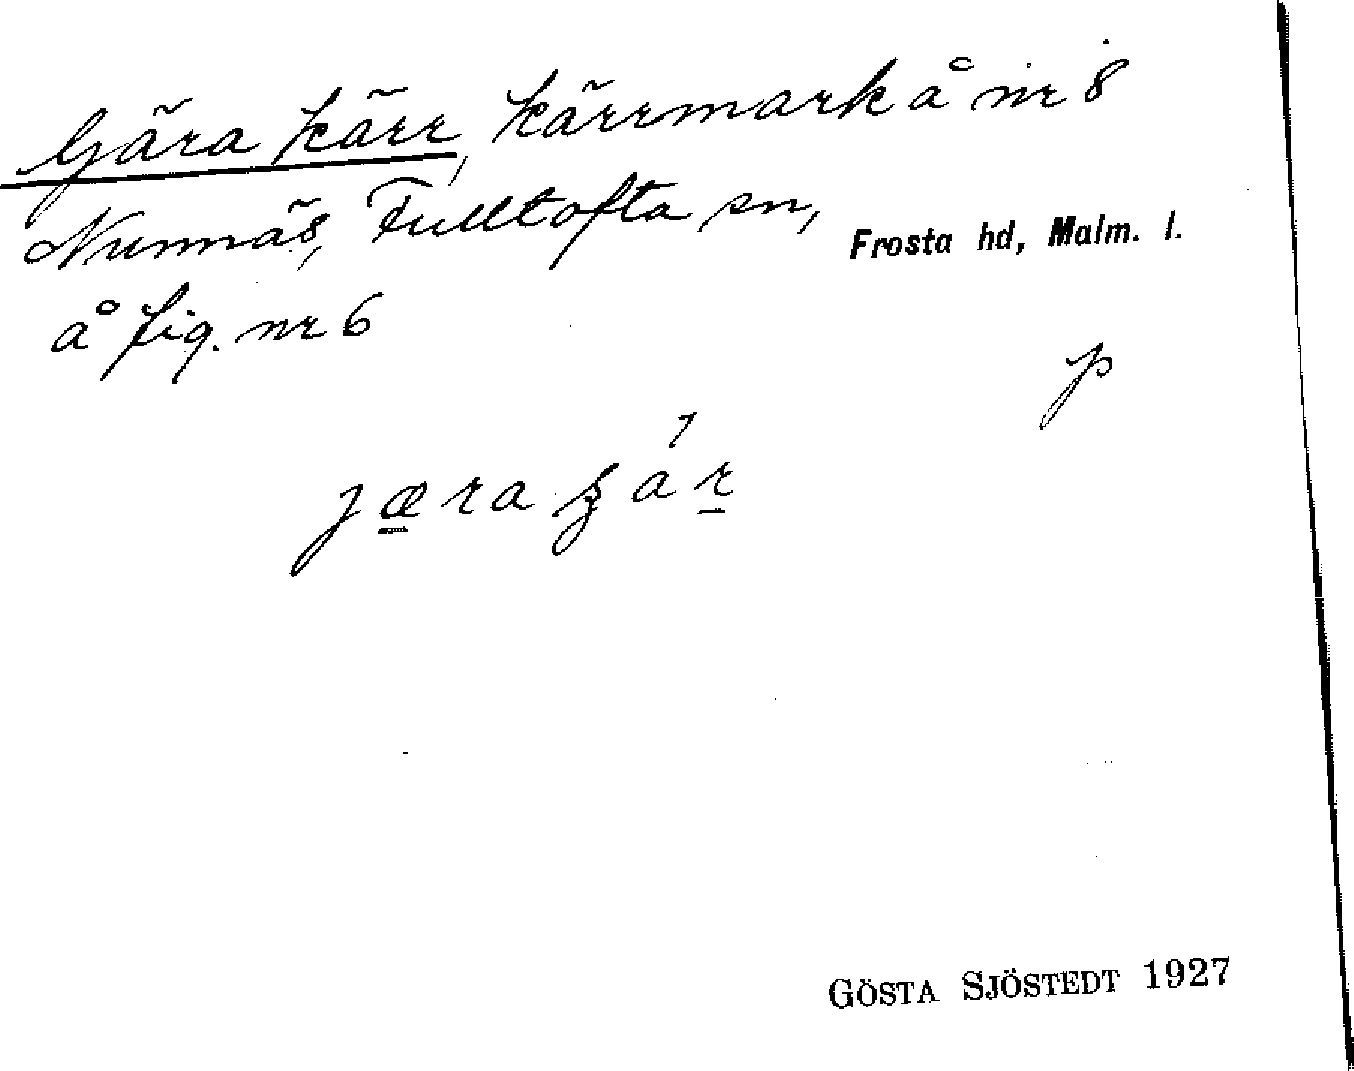 Gära kärr, kärrmark å nr 8
Nunnäs, Fulltofta sn, Frosta hd, Malm. l.
å fig. nr 6
p
GÖSTA SJÖSTEDT 1927